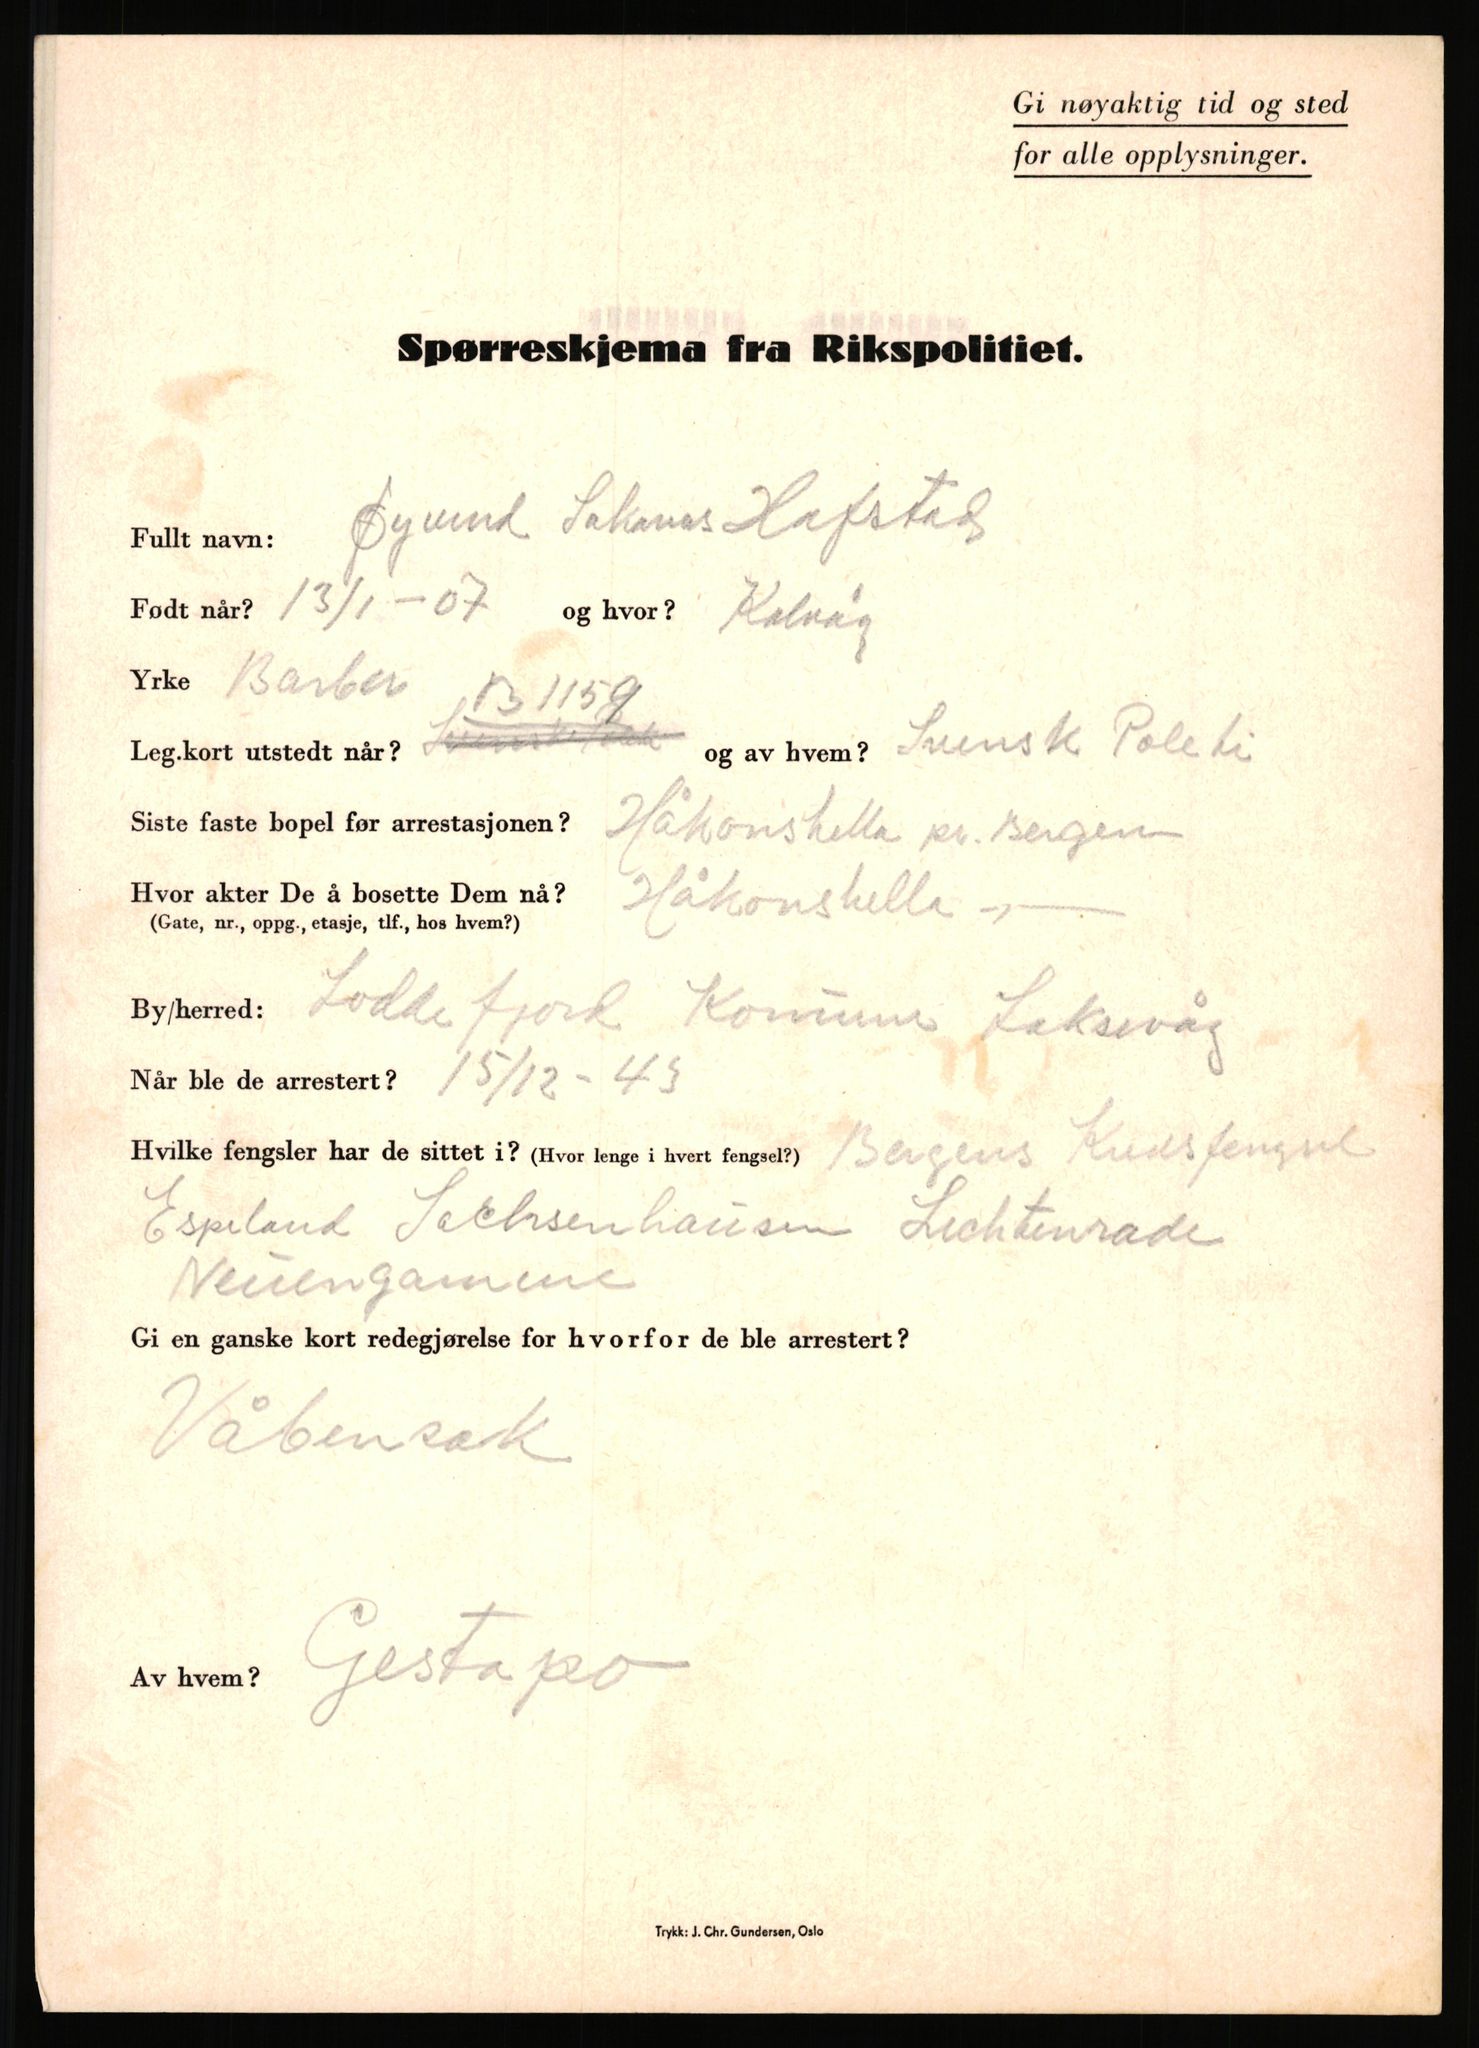 Gi nøyaktig tid og sted
for alle opplysninger.
Spørreskjema fra Rikspolitiet.
Fullt navn: Øyvind Sakarias Hafstad
Født når? 13/1-07 og hvor? Kalvåg
Yrke Barber
B 1159
Leg.kort utstedt når? og av hvem? Svensk Poleti
Siste faste bopel før arrestasjonen? Håkonshella pr. Bergen
Hvor akter De å bosette Dem nå? Håkonshella -„-
(Gate, nr., oppg., etasje, tlf., hos hvem?)
By/herred: Loddefjord Komune Laksevåg
Når ble de arrestert? 15/12-43
Hvilke fengsler har de sittet i? (Hvor lenge i hvert fengsel?) Bergens Kretsfengsel
Espeland Sachsenhausen Lichtenrade
Neuengamme
Gi en ganske kort redegjørelse for hvorfor de ble arrestert?
Våbensak
Av hvem? Gestapo
Trykk: J. Chr. Gundersen, Oslo